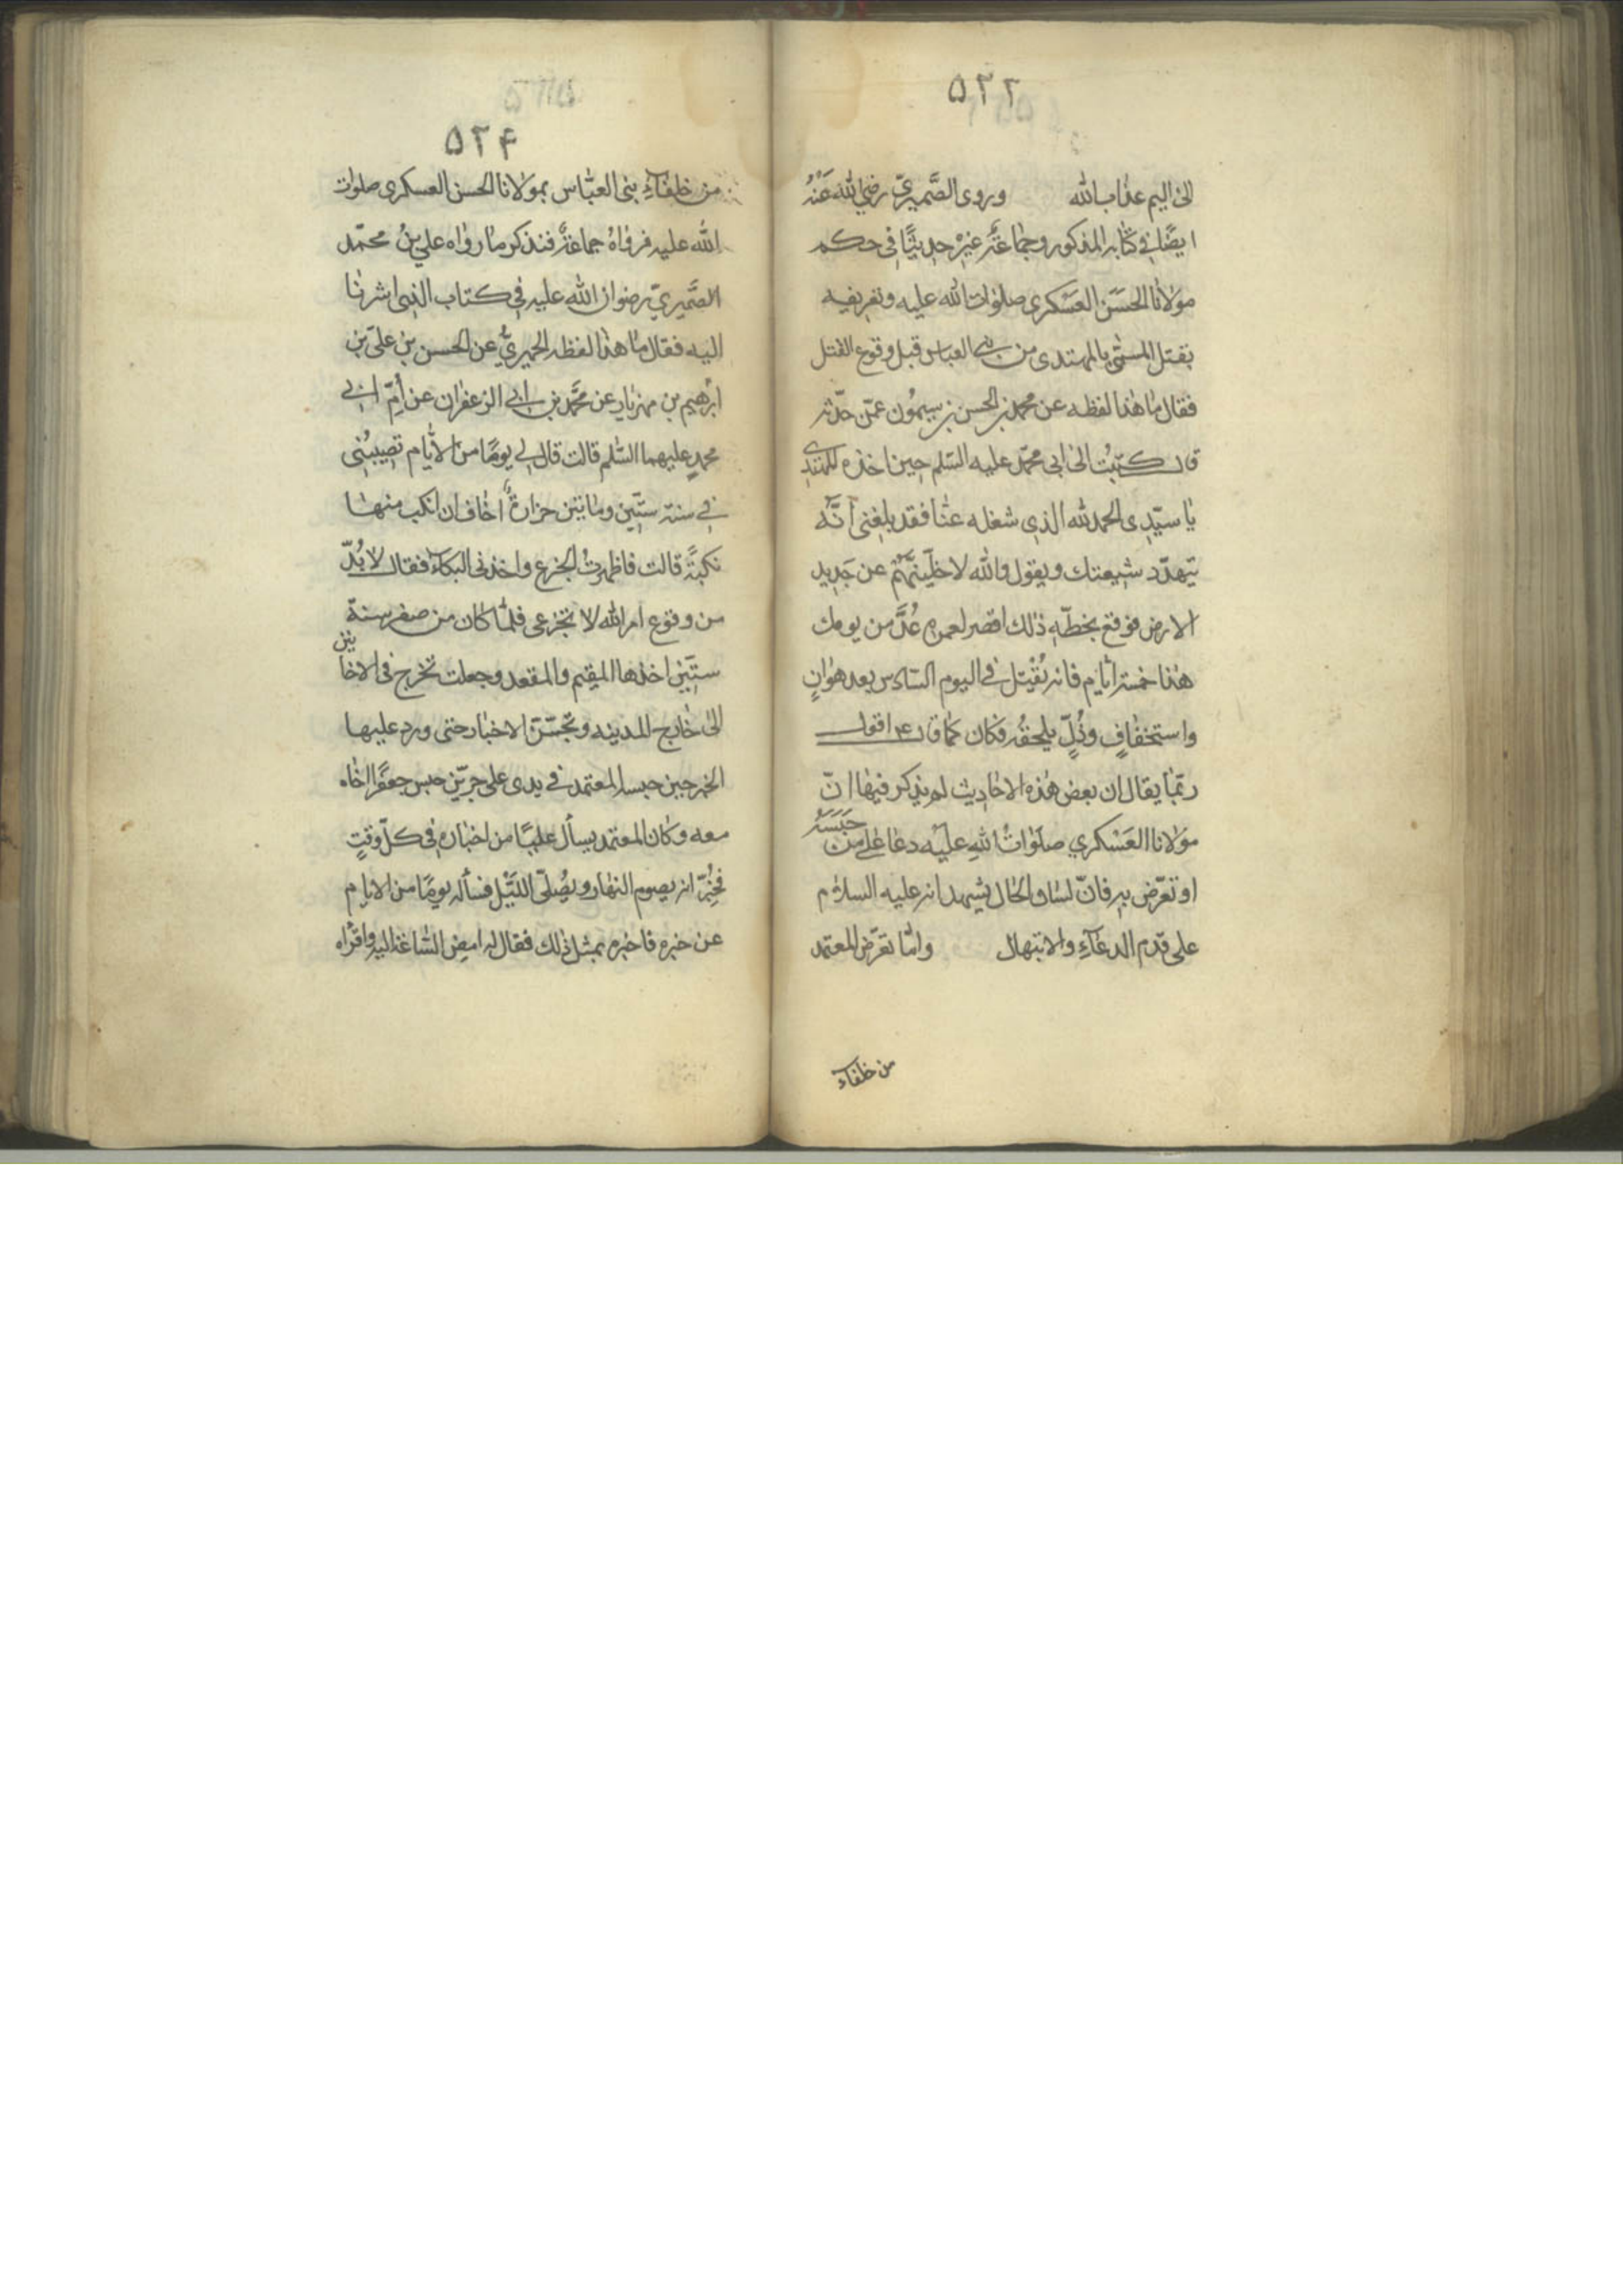 ۵۲۲
الى اليم عذاب الله وروى الصَّميريّ رضي الله عَنْهُ
ايضًا في كتابه المذكور وجماعَةٌ غيرُه حديثًا في حكم
مولانا الحسَن العَسكرى صلوات الله عليه وتعريفيه
بقتل المسمّى بالمهتدى من بني العباس قبل وقوع القتل
فقال ما هذا لفظه عن محمد بن الحسن بن سيمون عمّن حدّثه
قال كتبْتُ الى ابى محمّد عليه السّلم حين اخذه للمهتدى
يا سيّدى الحمد لله الذى شغله عنّا فقد بلغنى أنّه
يتهدّد شيعتك ويقول والله لاخلّينّهُم عن جَديد
الارض فوقع بخطّهِ ذلك اقصر لعمره عُدَّ من يومك
هذا خمسة ايّام فانه يُقْتل في اليوم السّادس بعد هوانٍ
واستخفافٍ وذُلٍّ يلحقُه فكان كما قال ع اقول
ربّما يقال ان بعض هذه الاحاديث لم يذكر فيها انّ
مولانا العَسْكري صلَوَاتُ اللهِ عليْه دعا على من حَبَسَهُ
او تعرّض به فانّ لسان الحال يشهد انه عليه السلام
على قدم الدعآءِ والابتهال وامّا تعرّض المعتمد
من خلفاء
۵۲۴
من خلفآءِ بنى العبّاس بمولانا الحسن العسكرى صلوات
الله عليه فرواهُ جماعةٌ فنذكر ما رواه علي بنُ محمّد
الصَّميريّ رضوان الله عليه في كتاب الذى اشرنا
اليه فقال ما هذا لفظه الحميريُّ عن الحسن بن علىّ بن
ابرٰهيم بن مهزيار عن محمَّد بن ابي الزعفران عن اُمّ ابي
محمدٍ عليهما السّلم قالت قال لي يومًا من الأيّام تصيبُنى
في سنة ستّين ومائتين حزازةٌ اخاف ان انكب منها
نكبَةً قالت فاظهرتُ الجزع واخذنى البكاءُ فقال لا بُدّ
من وقوع امر الله لا تجزعى فلمّا كان من صفر سنة
ستّين اخذها المقيم والمقعد وجعلت تخرج فى الاحايين
الى خارج المدينه وتجسّسَ الاخبار حتى ورد عليها
الخبر حين حبسه المعتمد في يدى على جرّين حبس جعفرًا اخاه
معه وكان المعتمد يسأل عليًا من اخباره في كلّ وقتٍ
فخبِّرَ انه يصوم النهار ويُصَلّى اللّيْل فسأله يومًا من الايام
عن خبره فاخبره بمثل ذلك فقال له امضِ السّاعة اليه واقرأه